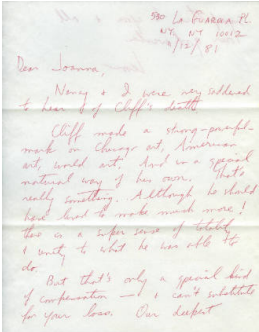 530 La Guardia Pl.
NY, NY 10012
/12/81
Dear Joanna,
Nancy & I were very saddened
to hear of Cliff's death.
Cliff made a strong-powerful-
mark on Chicago art, American
art, world art. And in a special
material way of his own. That's
really something. Although he should
have lived to make much more!
there is a super sense of totality
& unity to what he was able to
do.
But that's only a special kind
of compensation — it can't substitute
for your loss. Our deepest